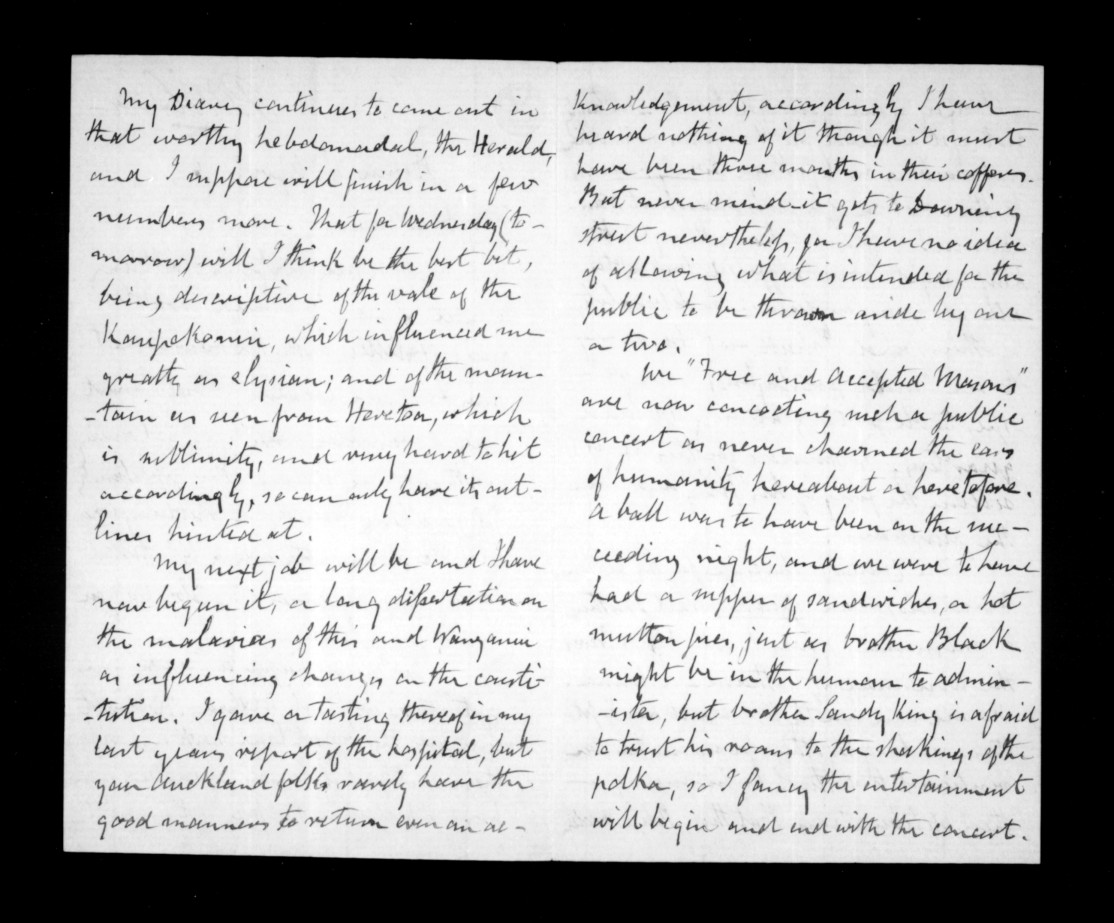 My Diary continues to come out in
that worthy hebdomadal, the Herald,
and I suppose will finish in a few
numbers more. That for Wednesday (to-
morrow) will I think be the best bit,
being descriptive of the vale of the
Kaupokonui, which influenced me
greatly as elysian; and of the moun-
-tain as seen from Hereton, which
is sublimity, and very hard to hit
accordingly, so can only have its out-
lines hinted at.
My next job will be and I have
now begun it, a long dissertation on
the malarias of this and Wanganui
as influencing changes on the consti-
-tution. I gave a tasting thereof in my
last years report of the hospital, but
your Auckland folks rarely have the
good manners to return even an ac-
knowledgement, accordingly I have
heard nothing of it though it must
have been three months in their coffers.
But never mind it gets to Downing
street nevertheless, for I have no idea
of allowing what is intended for the
public to be thrown aside by one
or two.
We "Free and Accepted Masons"
are now concocting such a public
concert as never charmed the ears
of humanity hereabout or heretofore.
A ball was to have been on the suc-
ceeding night, and we were to have
had a supper of sandwiches, or hot
mutton pies, just as brother Black
might be in the humour to admin-
-ister, but brother Sandy King is afraid
to trust his rooms to the shakings of the
polka, so I fancy the entertainment
will begin and end with the concert.